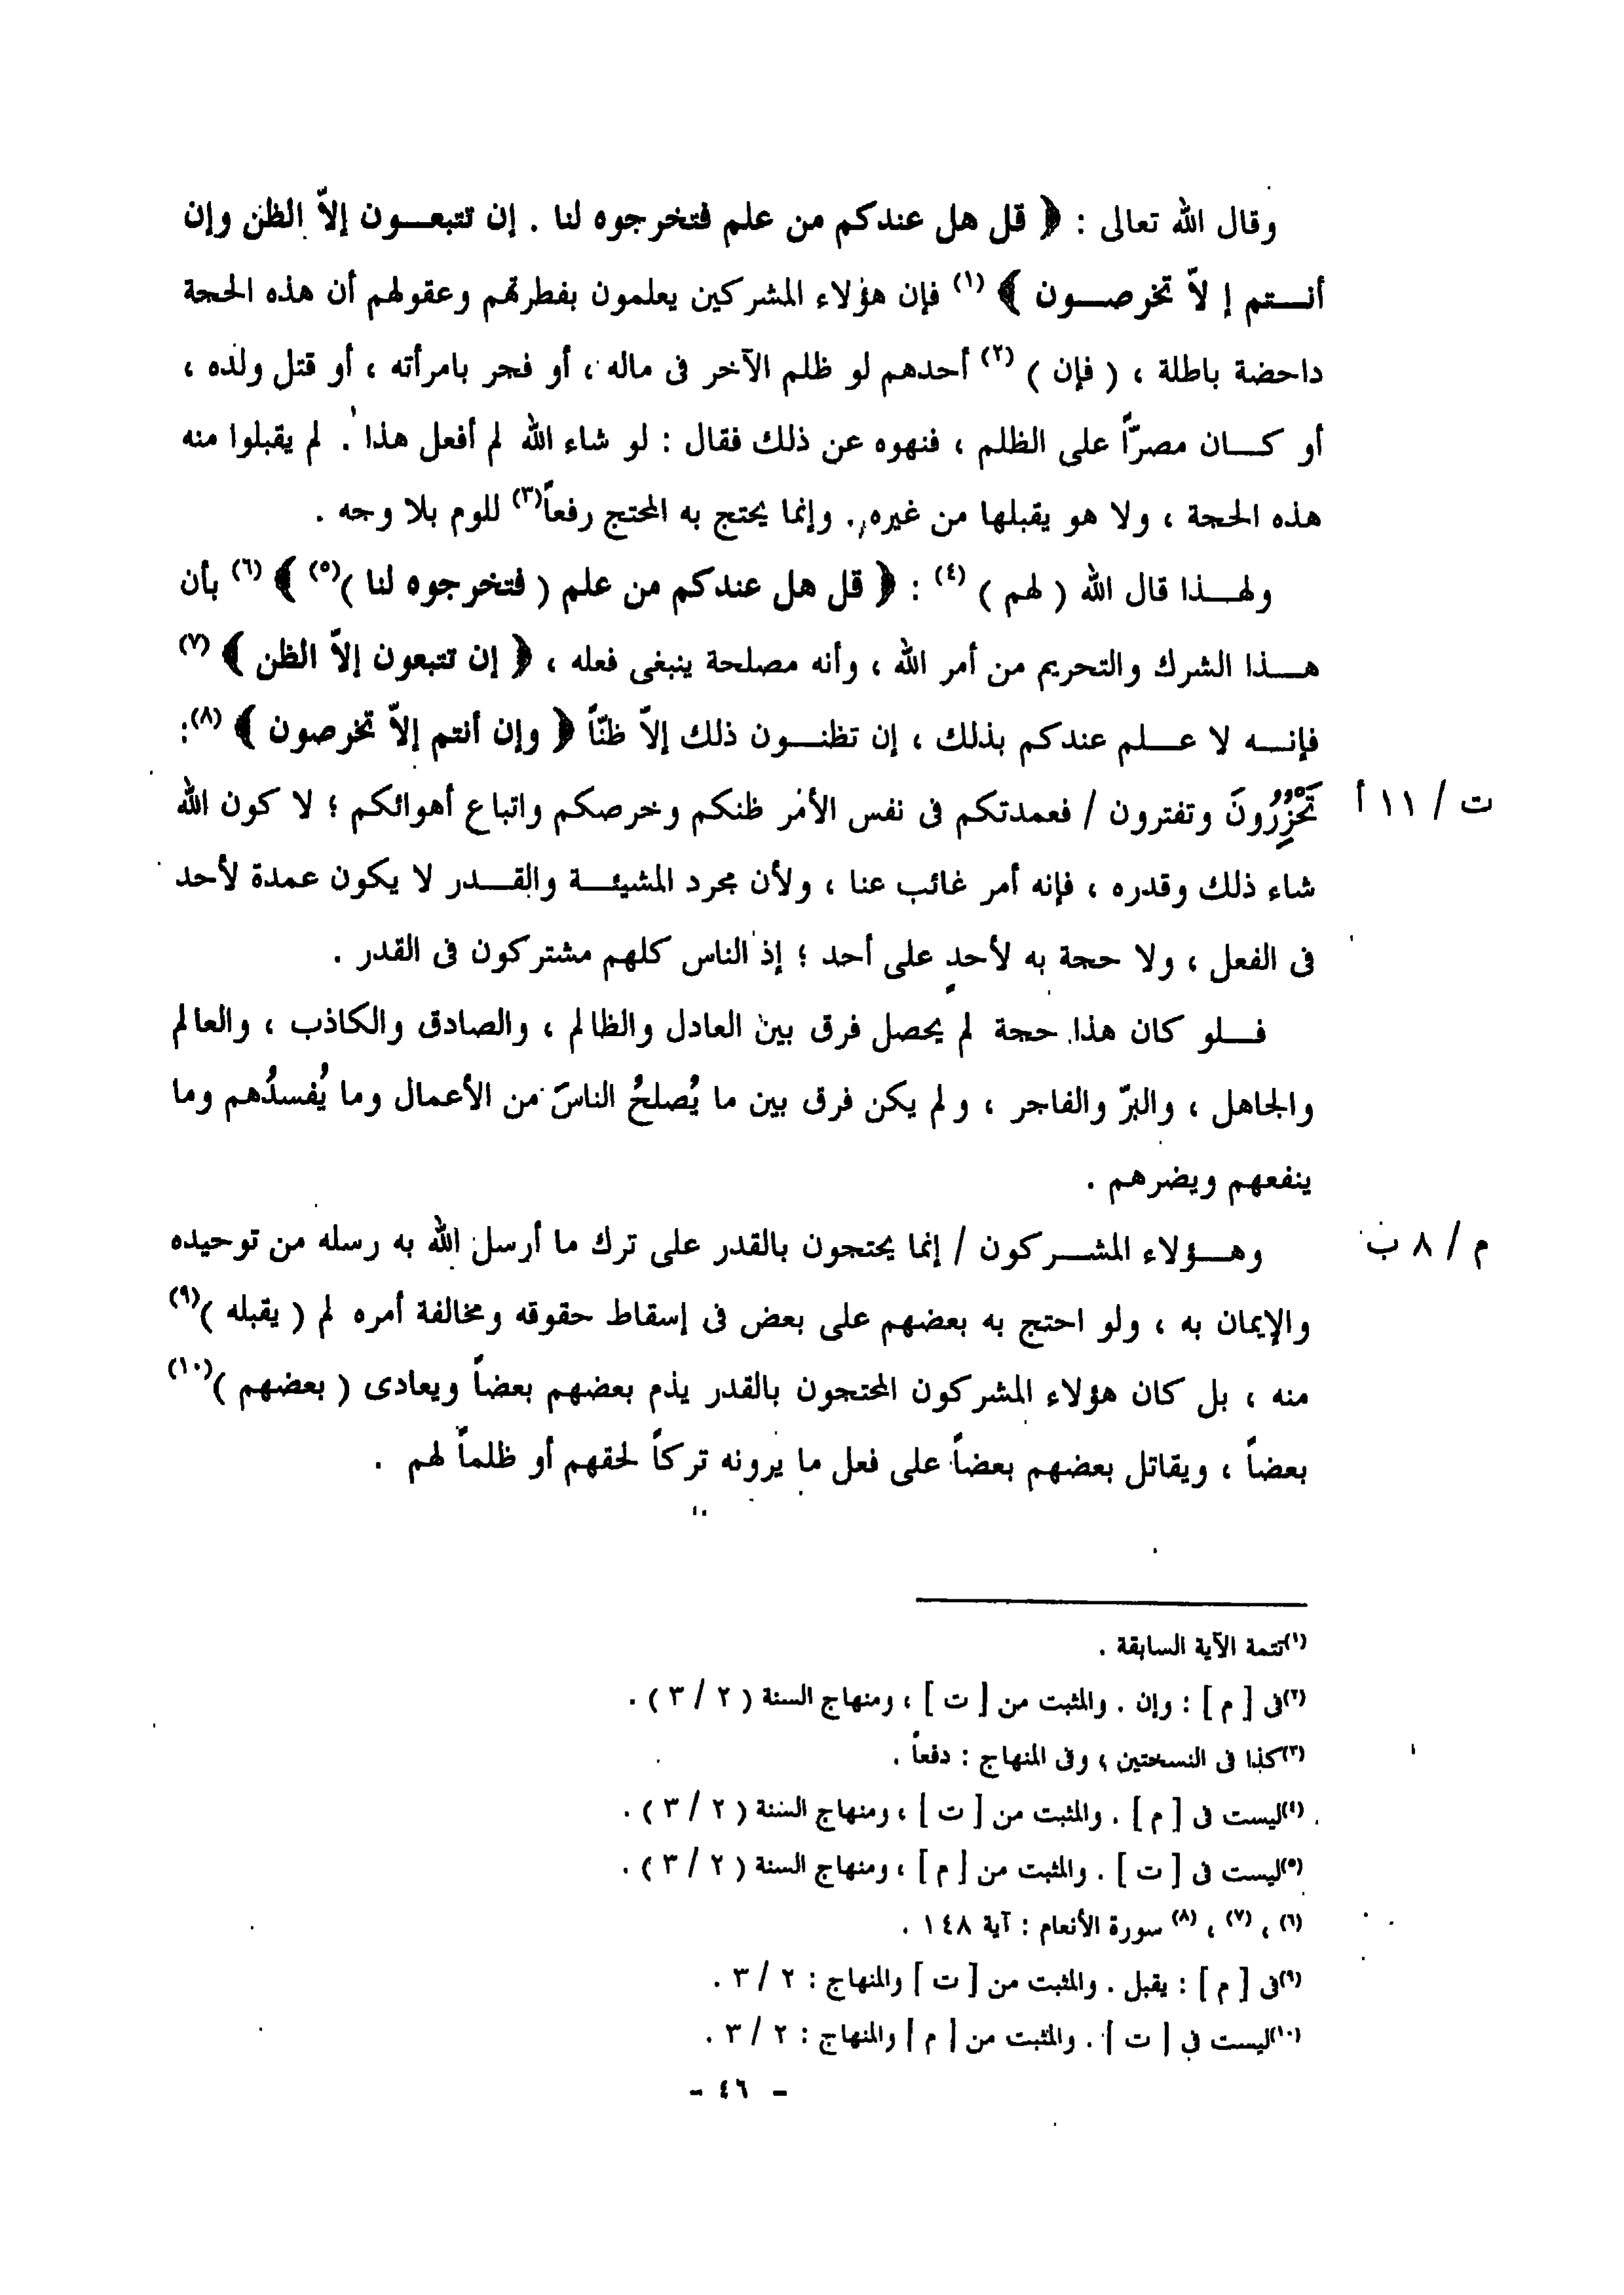 وقال الله تعالى : ﴿ قل هل عندكم من علم فتخرجوه لنا . إن تتبعــون إلاّ الظن وإن
أنــتم إ لاّ تخرصــون ﴾ (١) فإن هؤلاء المشركين يعلمون بفطرتهم وعقولهم أن هذه الحجة
داحضة باطلة ، ( فإن ) (٢) أحدهم لو ظلم الآخر فى ماله ، أو فجر بامرأته ، أو قتل ولده ،
أو كــان مصرّاً على الظلم ، فنهوه عن ذلك فقال : لو شاء الله لم أفعل هذا . لم يقبلوا منه
هذه الحجة ، ولا هو يقبلها من غيره . وإنما يحتج به المحتج رفعاً(٣) للوم بلا وجه .
ولهــذا قال الله ( لهم ) (٤) : ﴿ قل هل عندكم من علم ( فتخرجوه لنا )(٥) ﴾ (٦) بأن
هــذا الشرك والتحريم من أمر الله ، وأنه مصلحة ينبغى فعله ، ﴿ إن تتبعون إلاّ الظن ﴾ (٧)
فإنــه لا عــلم عندكم بذلك ، إن تظنــون ذلك إلاّ ظنّاً ﴿ وإن أنتم إلاّ تخرصون ﴾ (٨):
تَحْزِرُونَ وتفترون / فعمدتكم فى نفس الأمر ظنكم وخرصكم واتباع أهوائكم ؛ لا كون الله
ت / ١١ أ
شاء ذلك وقدره ، فإنه أمر غائب عنا ، ولأن مجرد المشيئــة والقــدر لا يكون عمدة لأحد
فى الفعل ، ولا حجة به لأحدٍ على أحد ؛ إذ الناس كلهم مشتركون فى القدر .
فــلو كان هذا حجة لم يحصل فرق بين العادل والظالم ، والصادق والكاذب ، والعالم
والجاهل ، والبرّ والفاجر ، ولم يكن فرق بين ما يُصلحُ الناسَ من الأعمال وما يُفسدُهم وما
ينفعهم ويضرهم .
وهــؤلاء المشــركون / إنما يحتجون بالقدر على ترك ما أرسل الله به رسله من توحيده
م / ٨ ب
والإيمان به ، ولو احتج به بعضهم على بعض فى إسقاط حقوقه ومخالفة أمره لم ( يقبله )(٩)
منه ، بل كان هؤلاء المشركون المحتجون بالقدر يذم بعضهم بعضاً ويعادى ( بعضهم )(١٠)
بعضاً ، ويقاتل بعضهم بعضاً على فعل ما يرونه تركاً لحقهم أو ظلماً لهم .
(١)تتمة الآية السابقة .
(٢)فى [ م ] : وإن . والمثبت من [ ت ] ، ومنهاج السنة ( ٢ / ٣ ) .
(٣)كذا فى النسختين ، وفى المنهاج : دفعاً .
(٤)ليست فى [ م ] . والمثبت من [ ت ] ، ومنهاج السنة ( ٢ / ٣ ) .
(٥)ليست فى [ ت ] . والمثبت من [ م ] ، ومنهاج السنة ( ٢ / ٣ ) .
(٦) ، (٧) ، (٨) سورة الأنعام : آية ١٤٨ .
(٩)فى [ م ] : يقبل . والمثبت من [ ت ] والمنهاج : ٢ / ٣ .
(١٠)ليست فى [ ت ] . والمثبت من [ م ] والمنهاج : ٢ / ٣ .
- ٤٦ -